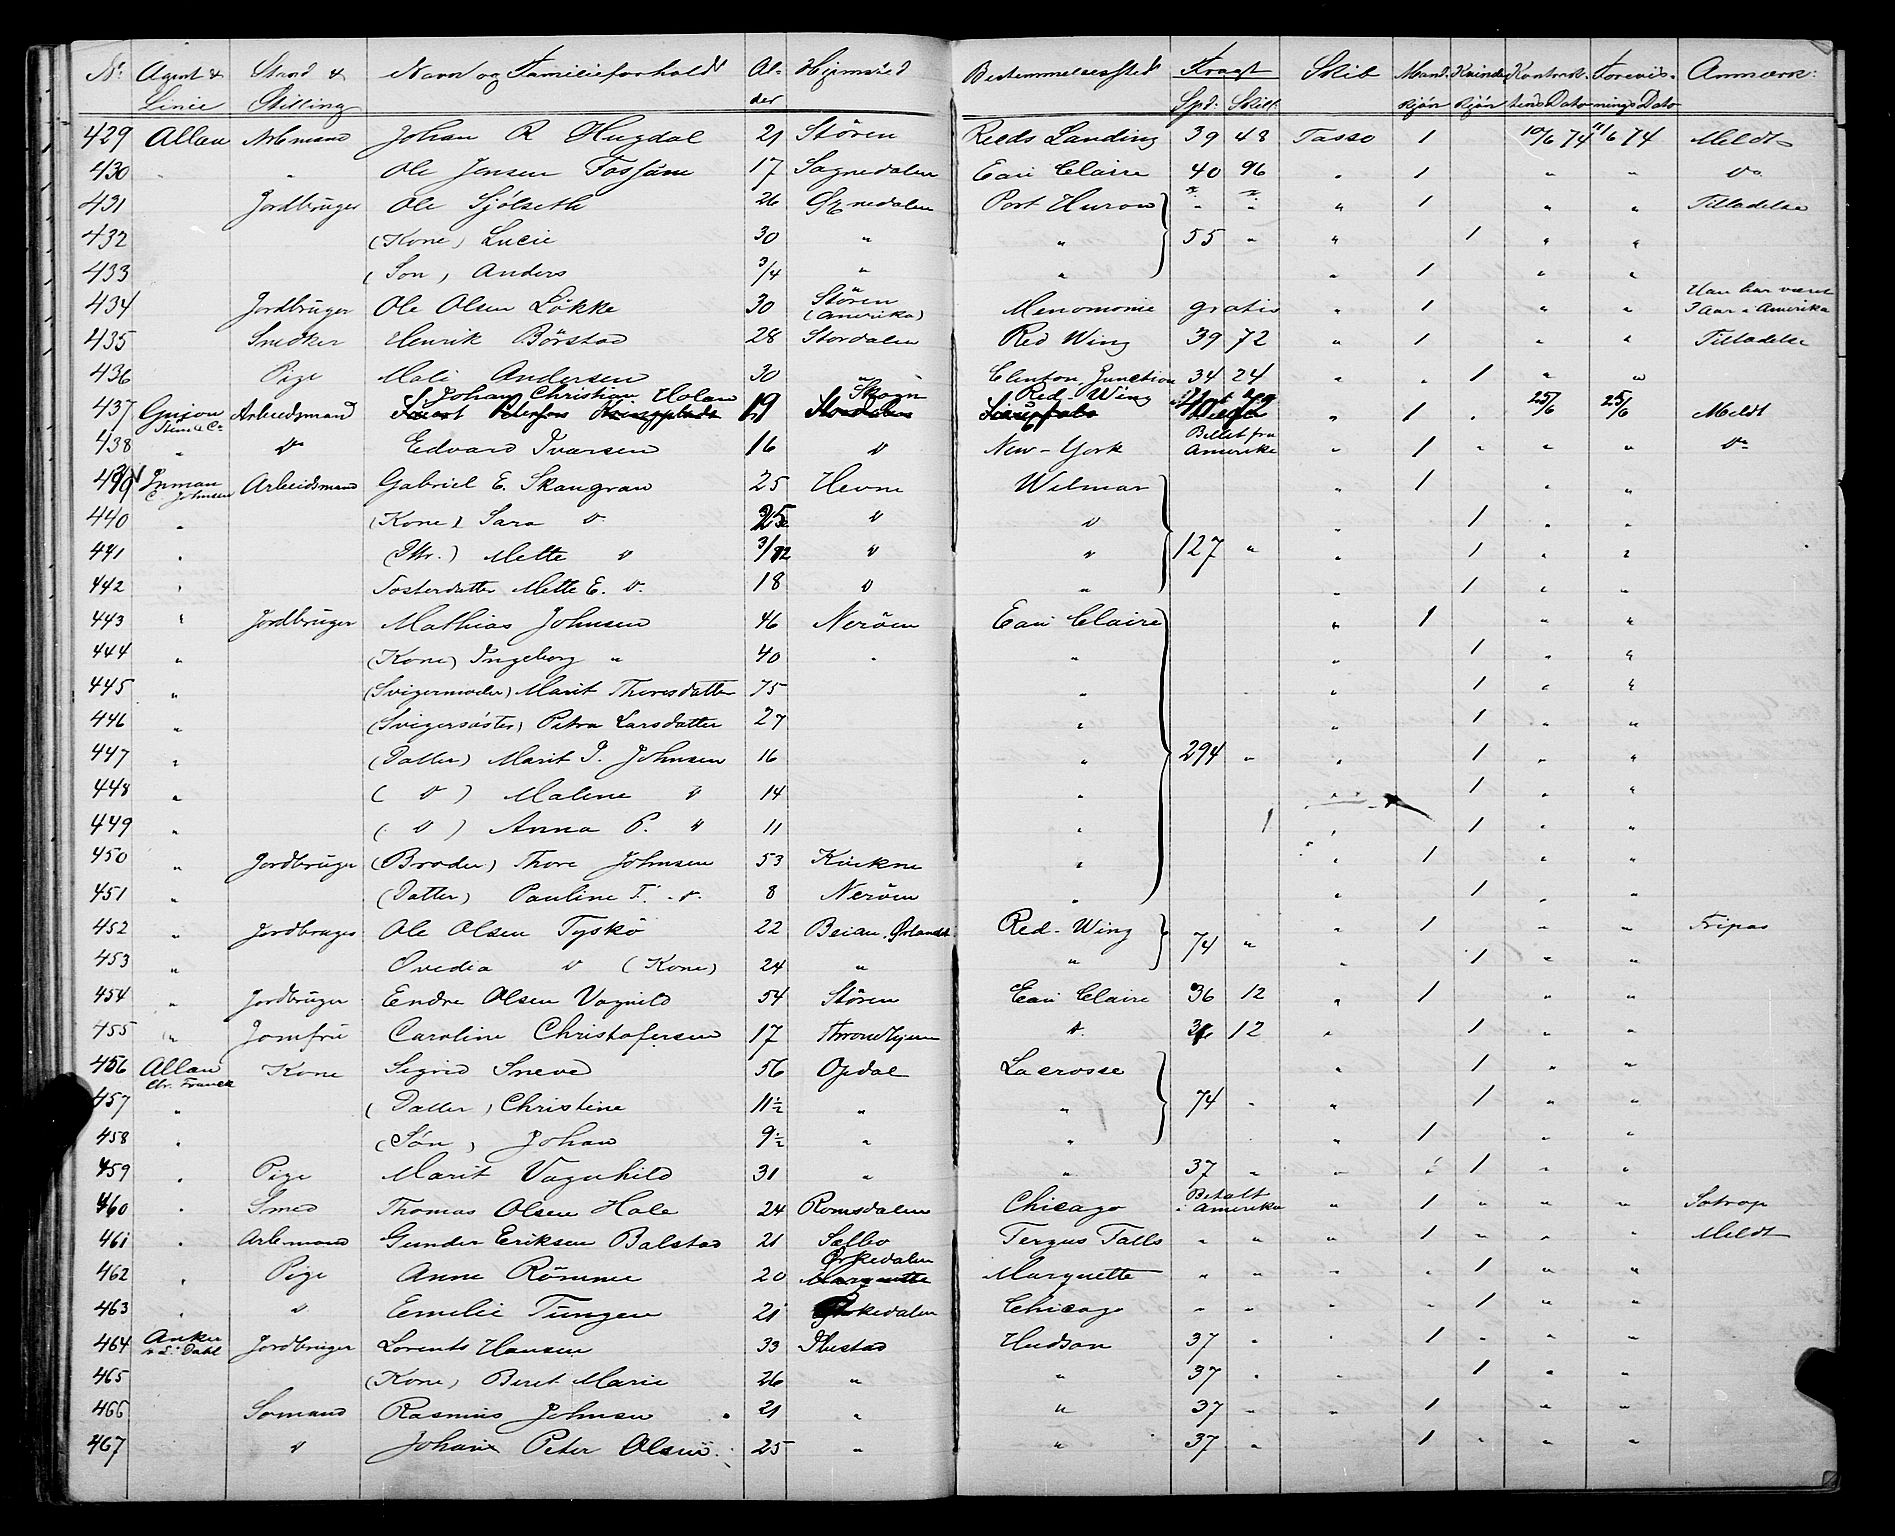 No. Agent & Linie Stand & Stilling Navn og Familieforhold Alder Hjemsted Bestemmelsessted Fragt Spd: Skill: Skib Mandkjön Kvindekjön Kontraktens Dato Forevisnings Dato Anmærk:
429 Allan Arbmand Johan R Hugdal 21 Stören Reeds Landing 39 48 Tasso 1 10/6 74 11/6 74 Meldt
430 " " Ole Jensen 17 Eau Claire 40 96 " 1 " " do
431 Jordbruger Ole Sjölseth 26 Port Huron " " " 1 " " Tilladelse
432 (Kone) Lucie 30 " " 55 " " 1 " "
433 (Son) Anders 3/4 " " " 1 " "
434 Jordbruger Ole Olsen Lökke 30 Stören (Amerika) Menomonie gratis " 1 " " Han har været i Amerika
435 Snedker Henrik Börstad 28 Stordalen Red Wing 39 72 " 1 " " Tilladelse
436 Pige Mali Andersen 30 " Clinton Junction 34 24 " " 1 " "
437 Guion Arbeidsmand Johan Christian Holan 19 Skogn Red Wing " 1 " 25/6 25/6 Meldt
438 " do Edvard Iversen 16 do New-York Billet fra Amerika " 1 " " " do
439 Inman C Johnsen Arbeidsmand Gabriel E. Skaugran 25 Hevne Wilmar " 1 " "
440 " (Kone) Sara do do do " 1 " "
441 " (Dtr.) Mette do 3/12 do " 127 " " 1 " "
442 " Fosterdatter Mette E. do. 18 do " 1 " "
443 " Jordbruger Mathias Johnsen 46 Neröen Eau Claire " 1 " "
444 " (Kone) Ingeborg " 40 " " " 1 " "
445 " (Svigermoder) Marit Thoresdatter 75 " " 1 " "
446 " (Svigersöster) Petra Larsdatter 27 " " 1 " "
447 " (Datter) Marit J. Johnsen 16 " 294 " " 1 " "
448 " ( do ) Malene do 14 " " 1 " "
449 " ( do ) Anna P. " 11 " " 1 " "
450 " Jordbruger (Broder) Thore Johnsen 53 Kvikne " " 1 " "
451 " (Datter) Pauline T. do. 8 Neröen " " 1 " "
452 " Jordbruger Ole Olsen Tyskö 22 Beian, Ørlandt Red-Wing " 1 " " Fripas
453 " Ovedia do (Kone) 24 " " 74 " " 1 " "
454 " Jordbruger Endre Olsen Vognild 54 Stören Eau Claire 36 12 " 1 " "
455 " Jomfru Caroline Christofersen 17 Throndhjem do. 36 12 " 1 " "
456 Allan Chr. Franck Kone Sigrid Sneve 56 Opdal Lacrosse " 1 " "
457 " (Datter) Christine 11½ " " 74 " " 1 " "
458 " (Sön) Johan 9½ " " " 1 " "
459 " Pige Marit Vognhild 31 " " 37 " " 1 " "
460 " Smed Thomas Olsen Hole 24 Romsdalen Chicago Betalt i Amerika " 1 " " "
461 " Arbmand Gunder Eriksen Balstad 21 Sælbo Fergus Falls " " " 1 " " " Meldt
462 " Pige Anne Römme 20 Orkedalen Marquette " " " " 1 " "
463 " do Emilie Tungen 21 Orkedalen Chicago " " " " 1 " "
464 Anker Dahl Jordbruger Lorents Hansen 33 Hudson 37 " " 1 " " "
465 (Kone) Beret Marie 26 " " 37 " " 1 " "
466 Sömand Rasmus Johnsen 21 " " 37 " " 1 " "
467 do Johan Peter Olsen 25 " " 37 " 1 " " "